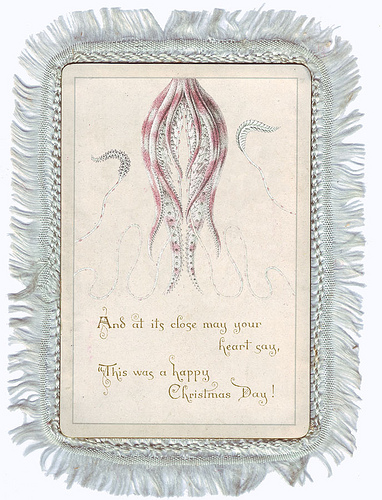 And at its close may your
heart say,
"This was a happy
Christmas Day!